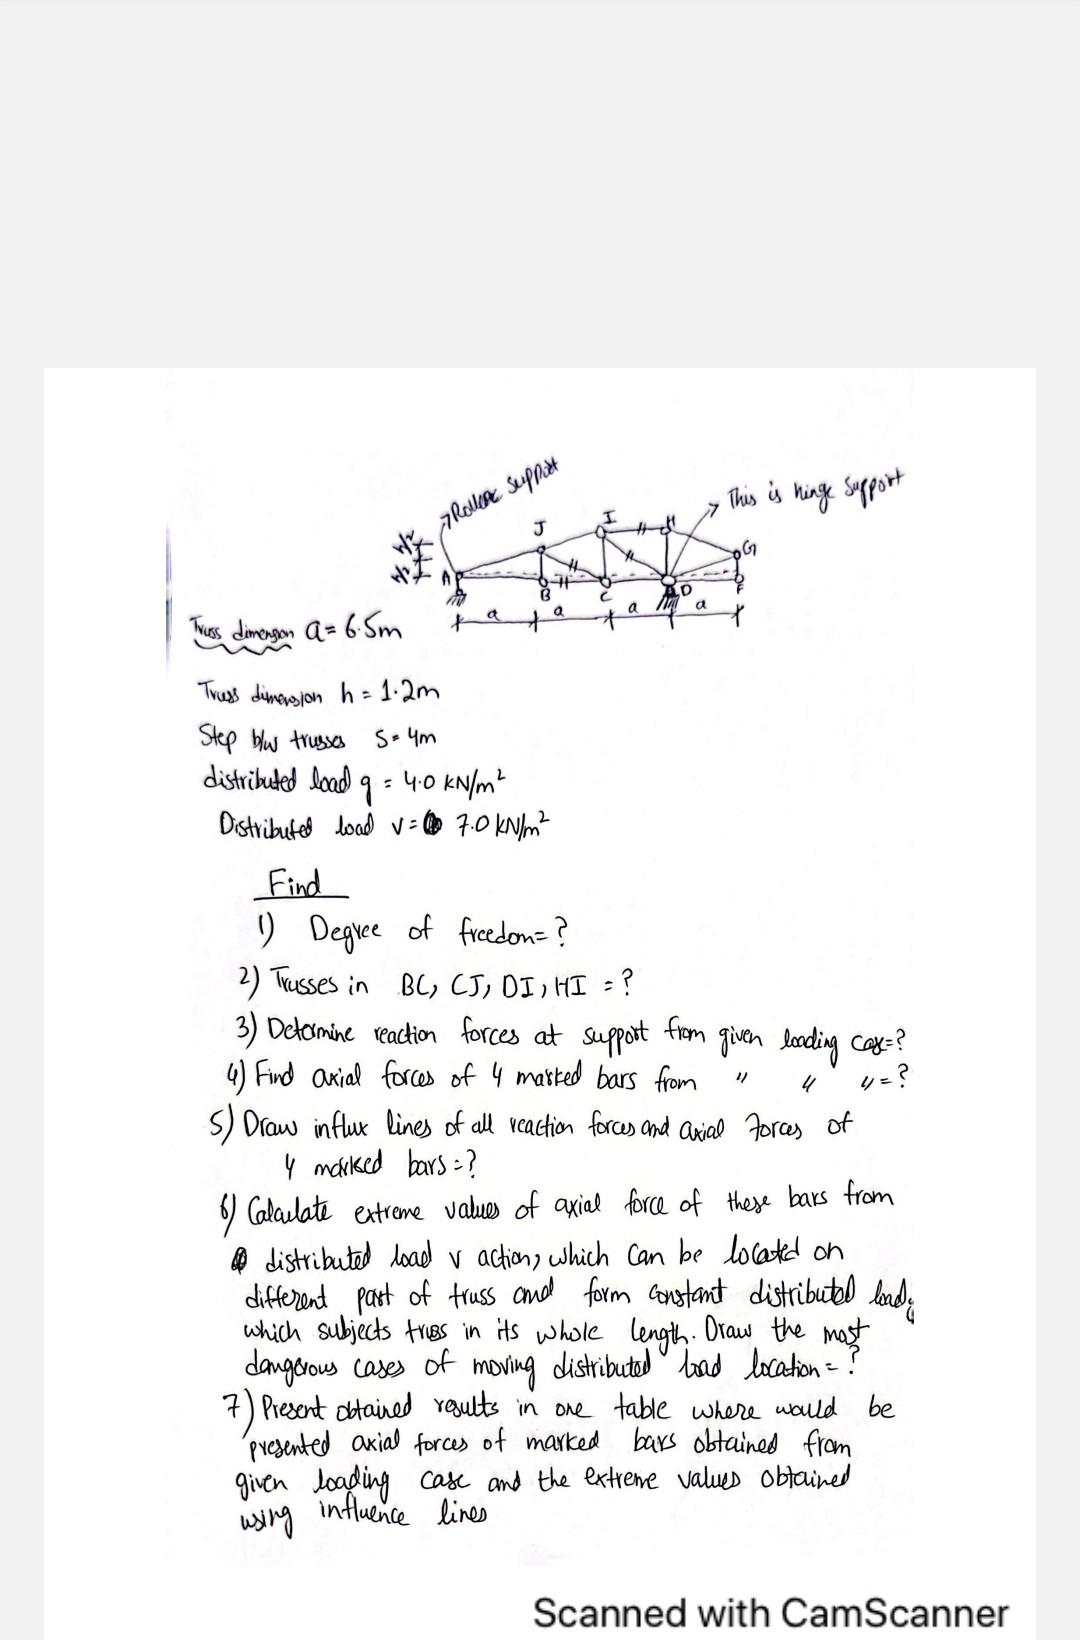 Roller support
This is hinge support
J
I
H
G
A
B
C
D
F
a
a
a
a
Truss dimension a = 6.5m
Truss dimension h = 1.2m
Step b/w trusses S = 4m
distributed load q = 4.0 KN/m²
Distributed load v = 7.0 KN/m²
Find
1) Degree of freedom = ?
2) Trusses in BC, CJ, DI, HI = ?
3) Determine reaction forces at support from given loading case = ?
4) Find axial forces of 4 marked bars from " " " = ?
5) Draw influx lines of all reaction forces and axial forces of
4 marked bars = ?
6) Calculate extreme values of axial force of these bars from
distributed load v action, which can be located on
different part of truss and form constant distributed load,
which subjects truss in its whole length. Draw the most
dangerous cases of moving distributed load location = ?
7) Present obtained results in one table where would be
presented axial forces of marked bars obtained from
given loading case and the extreme values obtained
using influence lines
Scanned with CamScanner